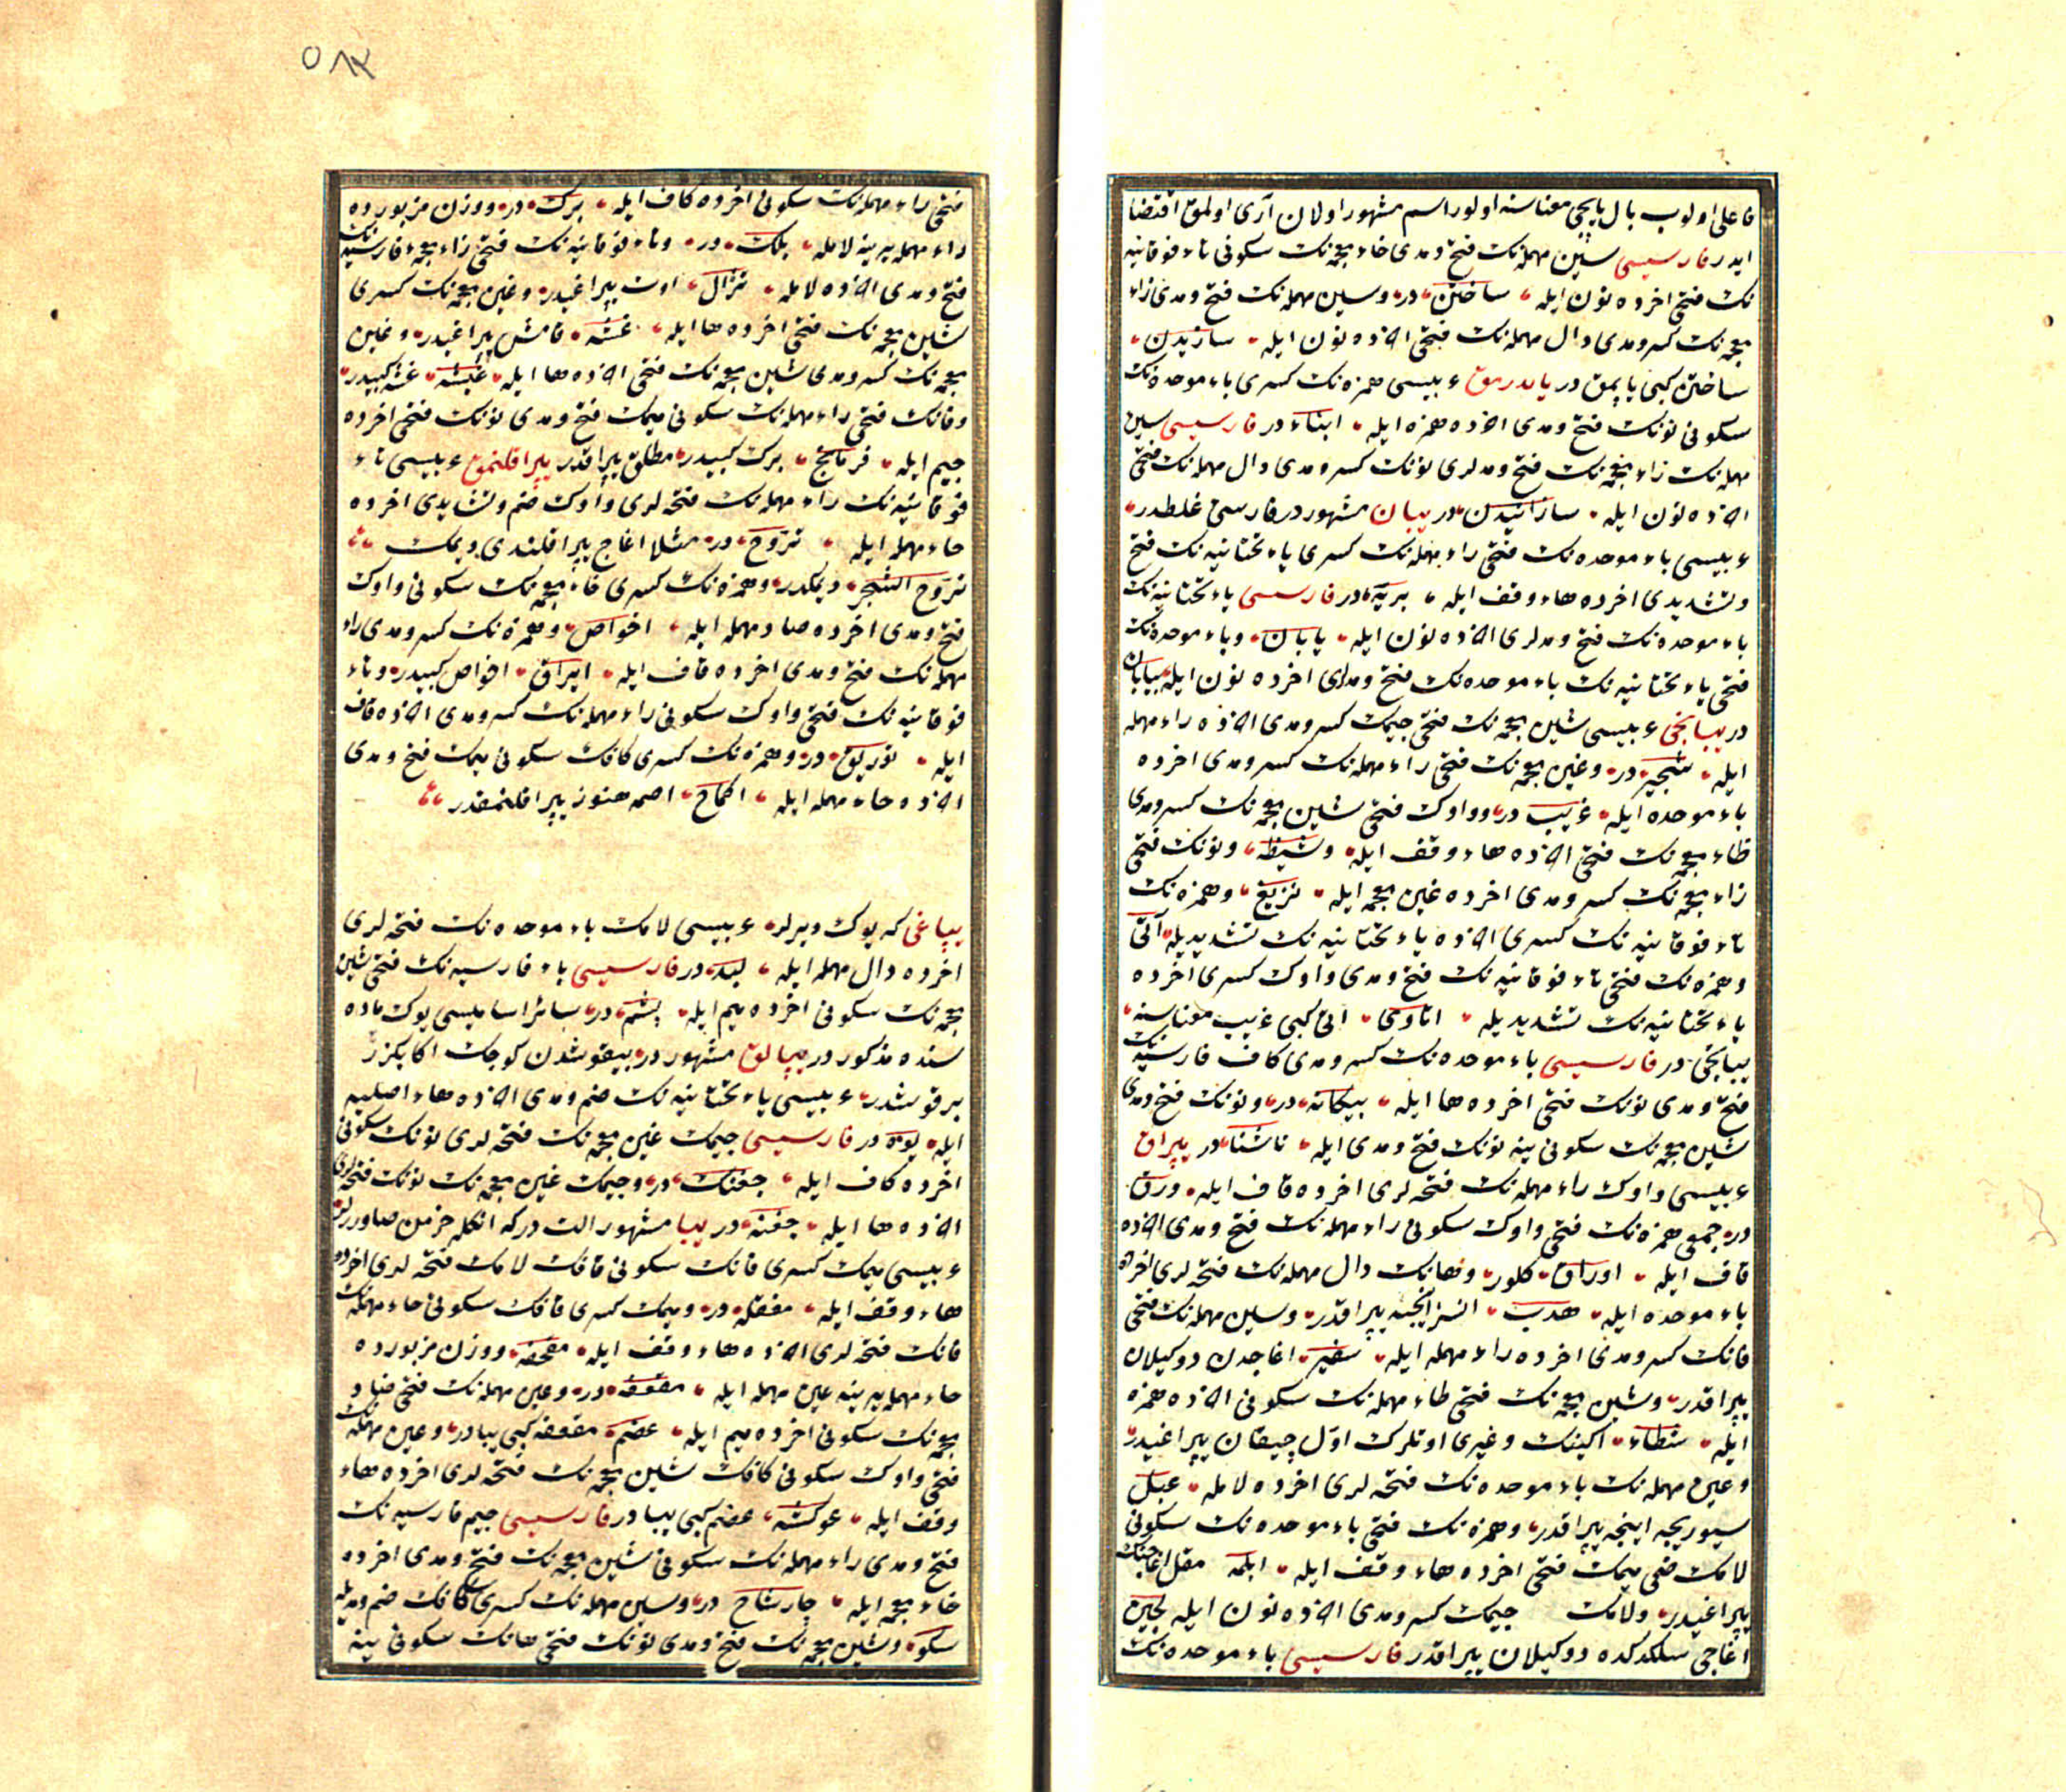 فاعلی اولوب بال یاپیجی معناسنه اولور اسم مشهور اولان آری اولمق اقتضا
ایدر فارسیسی سین مهمله‌نك فتح و مدی خاء معجمه‌نك سکونی تاء فوقانیه
نك فتحی اخرده نون ایله ساختن در وسین مهمله‌نك فتح و مدی زاء
معجمه‌نك کسر و مدی دال مهمله‌نك فتحی اخرده نون ایله سازیدن
ساختن کبی یاپمق در یاپدرمق عربیسی همزه‌نك کسری باء موحده‌نك
سکونی نونك فتح و مدی اخرده همزه ایله ابناء در فارسیسی سین
مهمله‌نك زاء معجمه‌نك فتح و مدلری نونك کسر و مدی دال مهمله‌نك فتحی
اخرده نون ایله سازانیدن در یبان مشهور در فارسی غلطدر
عربیسی باء موحده‌نك فتحی راء مهمله‌نك کسری یاء تحتانیه‌نك فتح
و تشدیدی اخرده هاء وقف ایله بریّة در فارسیسی یاء تحتانیه‌نك
باء موحده‌نك فتح و مدلری اخرده نون ایله یابان و باء موحده‌نك
فتحی یاء تحتانیه‌نك باء موحده‌نك فتح و مدلری اخرده نون ایله بیابان
در یبانجی عربیسی شین معجمه‌نك فتحی جیمك کسر و مدی اخرده راء مهمله
ایله شجیر در وغین معجمه‌نك فتحی راء مهمله‌نك کسر و مدی اخرده
باء موحده ایله غریب در و واوك فتحی شین معجمه‌نك کسر و مدی
ظاء معجمه‌نك فتحی اخرده هاء وقف ایله وشیظه ونونك فتحی
زاء معجمه‌نك کسر و مدی اخرده غین معجمه ایله نزیغ وهمزه‌نك
تاء فوقانیه‌نك کسری اخرده یاء تحتانیه‌نك تشدیدیله أتیّ
وهمزه‌نك فتحی تاء فوقانیه‌نك فتح و مدی واوك کسری اخرده
یاء تحتانیه‌نك تشدیدیله اتاویّ اتی کبی غریب معناسنه
یبانجی در فارسیسی باء موحده‌نك کسر و مدی کاف فارسیه‌نك
فتح و مدی نونك فتحی اخرده ها ایله بیکانه در ونونك فتح و مدی
شین معجمه‌نك سکونی ینه نونك فتح و مدی ایله ناشنا در یپراق
عربیسی واوك راء مهمله‌نك فتحه‌لری اخرده قاف ایله ورق
در جمعی همزه‌نك فتحی واوك سکونی راء مهمله‌نك فتح و مدی اخرده
قاف ایله اوراق کلور وهانك دال مهمله‌نك فتحه‌لری اخرده
باء موحده ایله هدب انسز اینجه یپراقدر وسین مهمله‌نك فتحی
فانك کسر و مدی اخرده راء مهمله ایله سفیر اغاجدن دوکیلان
یپراقدر وشین معجمه‌نك فتحی طاء مهمله‌نك سکونی اخرده همزه
ایله شطاء اکینك وغیری اوتلرك اوّل چیقان یپراغیدر
وعین مهمله‌نك باء موحده‌نك فتحه‌لری اخرده لامله عبل
سیوریجه اینجه یپراقدر وهمزه‌نك فتحی باء موحده‌نك سکونی
لامك ضمی میمك فتحی اخرده هاء وقف ایله ابلمه مقل اغاجینك
یپراغیدر ولامك جیمك کسر و مدی اخرده نون ایله لجین
اغاجی سلکدکده دوکیلان یپراقدر فارسیسی باء موحده‌نك
٥٨٢
فتحی راء مهمله‌نك سکونی اخرده کاف ایله برك در ووزن مزبورده
راء مهمله یرینه لامله بلك در وتاء فوقانیه‌نك فتحی زاء معجمه فارسیه‌نك
فتح و مدی اخرده لامله تژال اوت یپراغیدر وغین معجمه‌نك کسری
شین معجمه‌نك فتحی اخرده ها ایله غشه قامش یپراغیدر وغین
معجمه‌نك کسر و مدی شین معجمه‌نك فتحی اخرده ها ایله غیشه غشه کبیدر
وفانك فتحی راء مهمله‌نك سکونی میمك فتح و مدی نونك فتحی اخرده
جیم ایله فرمانج برك کبیدر مطلق یپراقدر یپراقلنمق عربیسی تاء
فوقانیه‌نك راء مهمله‌نك فتحه‌لری واوك ضم وتشدیدی اخرده
حاء مهمله ایله تروّح در مثلا اغاج یپراقلندی دیمك
تروّح الشجر دیمکدر وهمزه‌نك کسری خاء معجمه‌نك سکونی واوك
فتح و مدی اخرده صاد مهمله ایله اخواص وهمزه‌نك کسر و مدی راء
مهمله‌نك فتح و مدی اخرده قاف ایله ایراق اخواص کبیدر وتاء
فوقانیه‌نك فتحی واوك سکونی راء مهمله‌نك کسر و مدی اخرده قاف
ایله توریق در وهمزه‌نك کسری کافك سکونی میمك فتح و مدی
اخرده حاء مهمله ایله اکماح اصمه هنوز یپراقلنمقدر
یپاغی که یوك ویرلر عربیسی لامك باء موحده‌نك فتحه‌لری
اخرده دال مهمله ایله لبد در فارسیسی باء فارسیه‌نك فتحی شین
معجمه‌نك سکونی اخرده میم ایله پشم در سائر اسامیسی یوك ماده
سنده مذکور در یپالق مشهور در بیقوشدن کوچك اکا بکزر
بر قوشدر عربیسی یاء تحتانیه‌نك ضم و مدی اخرده هاء اصلیه
ایله یوه در فارسیسی جیمك غین معجمه‌نك فتحه‌لری نونك سکونی
اخرده کاف ایله جغنك در وجیمك غین معجمه‌نك نونك فتحه‌لری
اخرده ها ایله جغنه در یبا مشهور التدر که انکله خرمن صاورلر
عربیسی میمك کسری فانك سکونی قافك لامك فتحه‌لری اخرده
هاء وقف ایله مفقله در ومیمك کسری قافك سکونی حاء مهمله‌نك
فانك فتحه‌لری اخرده هاء وقف ایله مقحفه ووزن مزبورده
حاء مهمله یرینه عین مهمله ایله مقعفه در وعین مهمله‌نك فتحی ضاد
معجمه‌نك سکونی اخرده میم ایله عضم مقعفه کبی یبادر وعین مهمله‌نك
فتحی واوك سکونی کافك شین معجمه‌نك فتحه‌لری اخرده هاء
وقف ایله عوکشه عضم کبی یبادر فارسیسی جیم فارسیه‌نك
فتح و مدی راء مهمله‌نك سکونی شین معجمه‌نك فتح و مدی اخرده
خاء معجمه ایله چارشاخ در وسین مهمله‌نك کسری کافك ضم و مدیله
سکو وشین معجمه‌نك فتح و مدی نونك فتحی هانك سکونی ینه